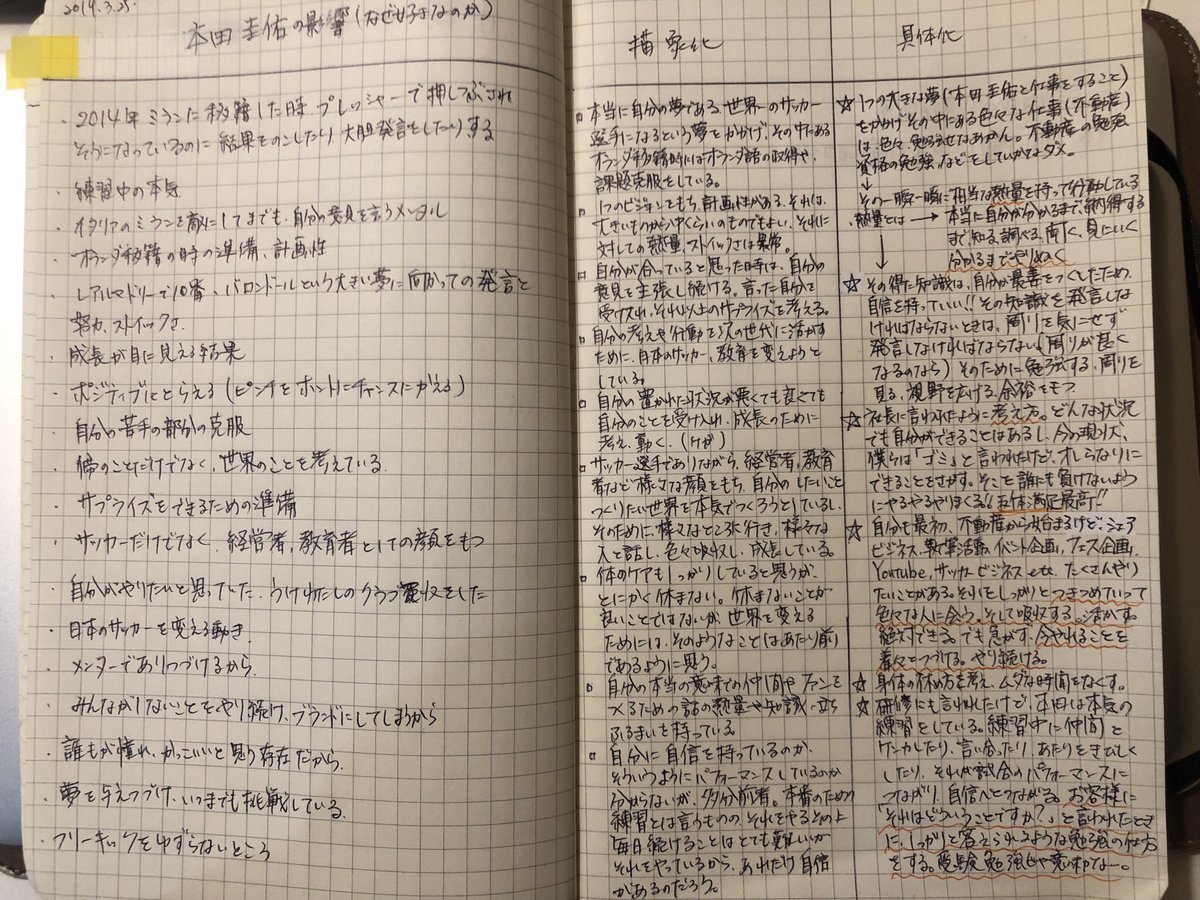 2019.3.25.
本田圭佑の影響(なぜ好きなのか)
・2014年ミランに移籍した時、プレッシャーで押しつぶされ
そうになっているのに結果をのこしたり、大胆発言をしたりする
・練習中の本気
・イタリアのミランを敵にしてまでも、自分の意見を言うメンタル
・オランダ移籍の時の準備、計画性
・レアルマドリーで10番、バロンドールという大きい夢に向かっての発言と
努力、ストイックさ。
・成長が目に見える結果
・ポジティブにとらえる(ピンチをホントにチャンスにかえる)
・自分の苦手の部分の克服
・俺のことだけでなく、世界のことを考えている.
・サプライズをできるための準備
・サッカーだけでなく、経営者、教育者としての顔をもつ
・自分がやりたいと思っていた、うけわたしのクラブ買収をした
・日本のサッカーを変える動き.
・メンターでありつづけるから.
・みんながしないことをやり続け、ブランドにしてしまうから
・誰もが憧れ、かっこいいと思う存在だから.
・夢を与えつづけ、いつまでも挑戦している.
・フリーキックをゆずらないところ
描象化
□本当に自分の夢である、世界一のサッカー
選手になるという夢をかかげ、その中にある
オランダ移籍時にはオランダ語の取得や、
課題克服をしている。
□1つのビジョンをもち、計画性がある。それは、
大きいものから小さいくらいのものでもよい。それに
対しての熱量、ストイックさは異常。
□自分が合っていると思った時は、自分の
意見を主張し続ける。言った自分を
受け入れ、それ以上のサプライズを考える。
□自分の考えや行動を次の世代に活かす
ために、日本のサッカー、教育を変えようと
している。
□自分の置かれた状況が悪くても良くても
自分のことを受け入れ、成長のために
考え、動く。(ケガ)
□サッカー選手でありながら、経営者、教育
者など様々な顔をもち、自分のしたいこと
つくりたい世界を本気でつくろうとしているし、
そのために、様々なところに行き、様々な
人と話し、色々吸収し、成長している。
□体のケアもしっかりしていると思うが、
とにかく休まない。休まないことが
良いことではないが、世界を変える
ためには、そのようなことはあたり前
であるように思う。
□自分の本当の意味での仲間やファンを
つくるための話の熱量や知識、立ち
ふるまいを持っている。
□自分に自信を持っているのか、
そういうようにパフォーマンスしているのか
分からないが、多分前者。本番のための
練習とは言うものの、それをやるそのよ
毎日続けることはとても難しいが
それをやっているから、あれだけ自信
があるのだろう。
具体化
☆1つの大きな夢(本田圭佑と仕事をすること)
をかかげ、その中にある色々な仕事(不動産)
は、色々、勉強せなあかん。不動産の勉強
資格の勉強、などをしていかなダメ。
↓
その一瞬一瞬に相当な熱量を持って行動している
熱量とは → 本当に自分が分かるまで、納得する
まで、知る、調べる、聞く、見にいく
分かるまでやりぬく
↓
☆その得た知識は、自分が最善をつくしたため、
自信を持っていい!! その知識を発言しな
ければならないときは、周りを気にせず
発言しなければならない(周りが甚く
なるのなら) そのために勉強する、周りを
見る、視野を広げる、余裕をもつ
☆社長に言われたように考え方。どんな状況
でも自分ができることはあるし、今の現状、
僕らは「ゴミ」と言われたけど、オレらなりに
できることをさがす。そこを誰にも負けないよう
にやるやるやりまくる!五体満足最高!!
☆自分も最初、不動産から始まるけど、シェア
ビジネス、執筆活動、イベント企画、フェス企画、
Youtube、サッカービジネス etc. たくさんやり
たいことがある。それをしっかりとつきつめていって
色々な人に会う。そして吸収する。活かす。
絶対できる。でも急がす、今やれることを
着々とつづける。やり続ける。
☆身体の休め方を考え、ムダな時間をなくす。
☆研修にも言われたけど、本田は本気の
練習をしている。練習中に仲間と
ケンカしたり、言い合ったり、あたりをきびしく
したり、それが試合のパフォーマンスに
つながり、自信へとつながる。お客様に
「それはどういうことですか?」と言われたとき
に、しっかりと答えられるような勉強の仕方
をする。受験勉強じゃ意味なー。